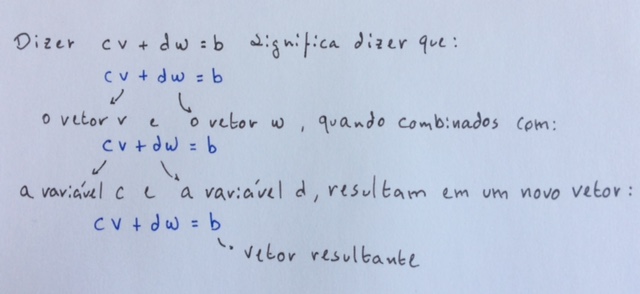 Dizer cv + dw = b significa dizer que:
cv + dw = b
o vetor v e o vetor w, quando combinados com:
cv + dw = b
a variável c e a variável d, resultam em um novo vetor:
cv + dw = b
vetor resultante